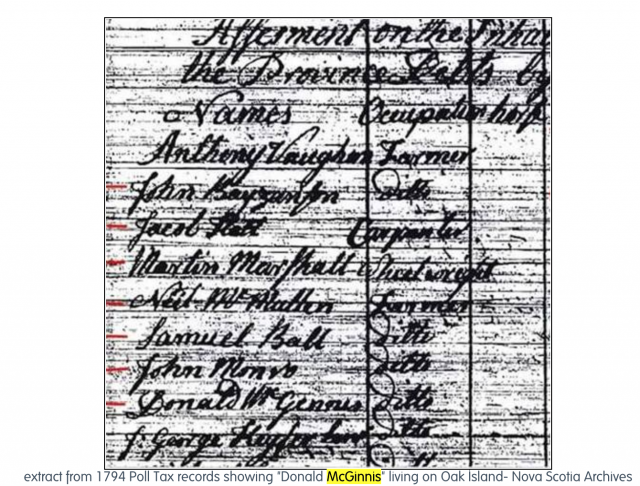 Assesment on the Inhab
the Province Debts by
Names Occupation
Anthony Vaughan Farmer
John ditto
Jacob Carpenter
Martin Marshall Wheelwright
Neil Farmer
Samuel Ball ditto
John Monro ditto
Donald McGennis ditto
George ditto
extract from 1794 Poll Tax records showing "Donald McGinnis" living on Oak Island- Nova Scotia Archives